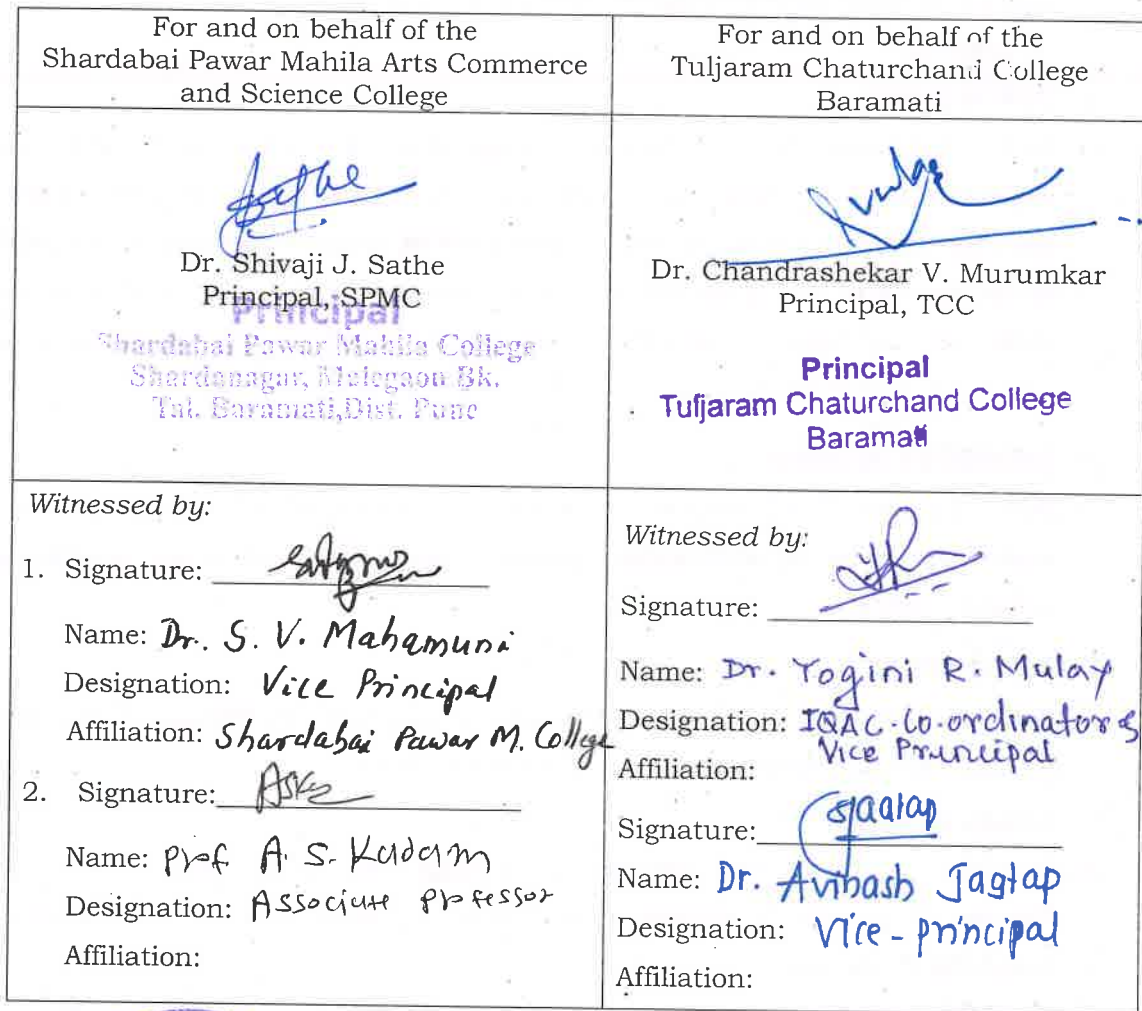 For and on behalf of the
Shardabai Pawar Mahila Arts Commerce
and Science College
Sathe
Dr. Shivaji J. Sathe
Principal, SPMC
Principal
Shardabai Pawar Mahila College
Shardanagar, Malegaon Bk.
Tal. Baramati, Dist. Pune
For and on behalf of the
Tuljaram Chaturchand College
Baramati
Dr. Chandrashekar V. Murumkar
Principal, TCC
Principal
Tuljaram Chaturchand College
Baramati
Witnessed by:
1. Signature:
Name: Dr. S. V. Mahamuni
Designation: Vice Principal
Affiliation: Shardabai Pawar M. College
2. Signature:
Name: Prof A. S. Kadam
Designation: Associate Professor
Affiliation:
Witnessed by:
Signature:
Name: Dr. Yogini R. Mulay
Designation: IQAC Co-ordinator &
Vice Principal
Affiliation:
Signature: Jagtap
Name: Dr. Avinash Jagtap
Designation: Vice-principal
Affiliation: